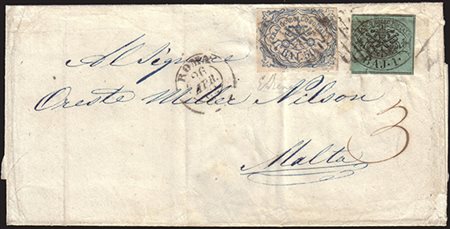 Al Signore
ROMA
26
APR.
BAJ. 1
Oreste Miller Nilson
3
Malta